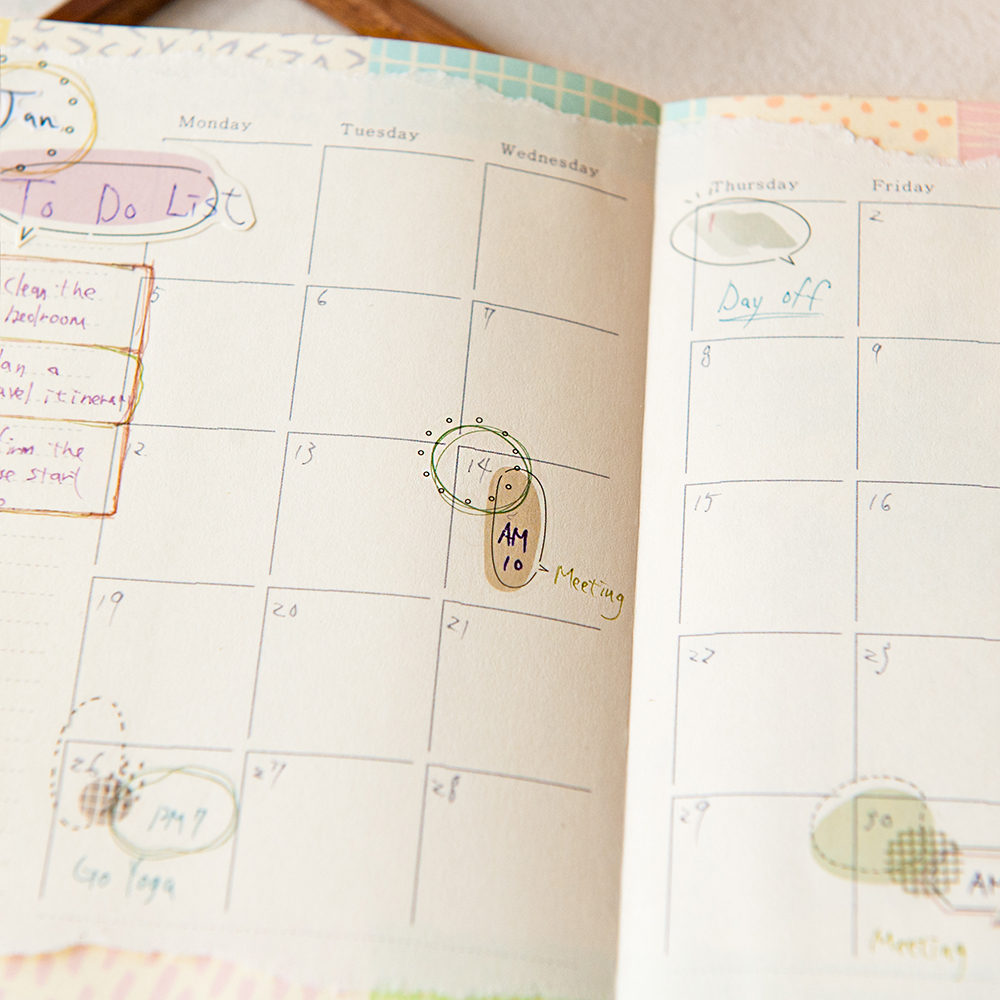 Jan
To Do List
Clean the
bedroom
a
itinerary
the
start
Monday Tuesday Wednesday
5 6 7
12 13 14
AM
10
Meeting
19 20 21
26 27 28
PM 7
Go Yoga
Thursday Friday
1 2
Day off
8 9
15 16
22 23
29 30
Meeting